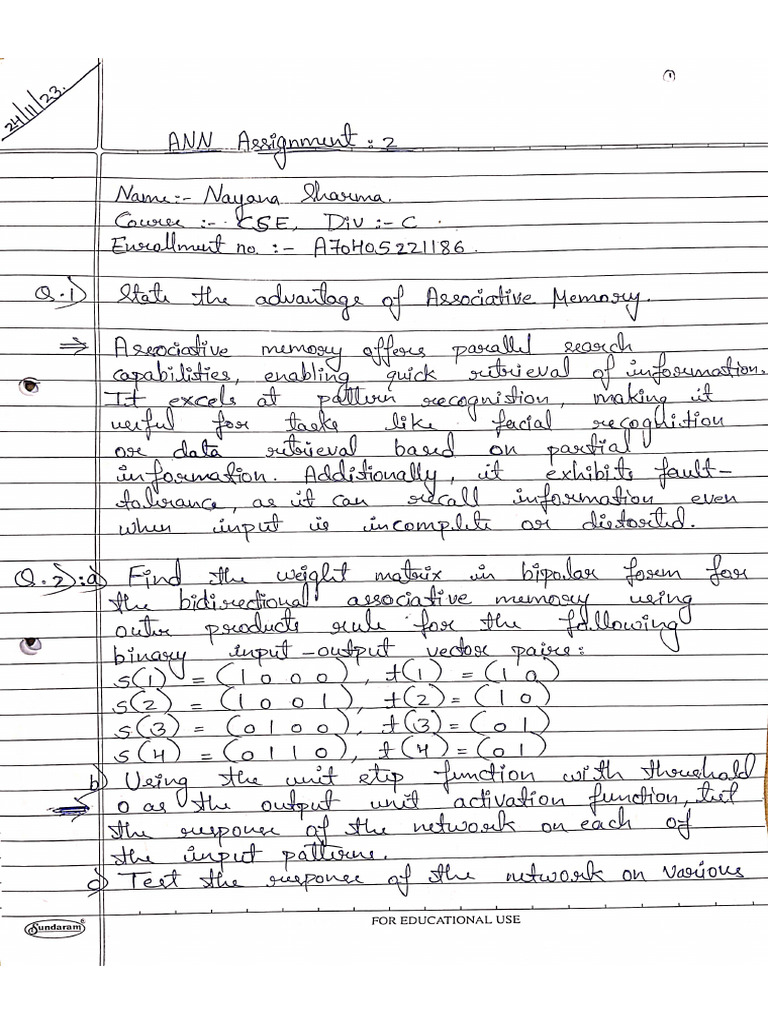 ①
24/11/23.
ANN Assignment : 2
Name:- Nayana Sharma.
Course :- CSE, Div :- C.
Enrollment no. :- A70405221186.
Q.1) State the advantage of Associative Memory.
⇒ Associative memory offers parallel search
capabilities, enabling quick retrieval of information.
It excels at pattern recognistion, making it
useful for tasks like facial recognition
or data retrieval based on partial
information. Additionally, it exhibits fault-
tolerance, as it can recall information even
when input is incomplete or distorted.
Q.2):a) Find the weight matrix in bipolar form for
the bidirectional associative memory using
outer products rule for the following
binary input-output vector pairs:
s(1) = (1 0 0 0), t(1) = (1 0)
s(2) = (1 0 0 1), t(2) = (1 0)
s(3) = (0 1 0 0), t(3) = (0 1)
s(4) = (0 1 1 0), t(4) = (0 1)
b) Using the unit step function with threshold
0 as the output unit activation function, test
the response of the network on each of
the input patterns.
c) Test the response of the network on various
Sundaram®
FOR EDUCATIONAL USE